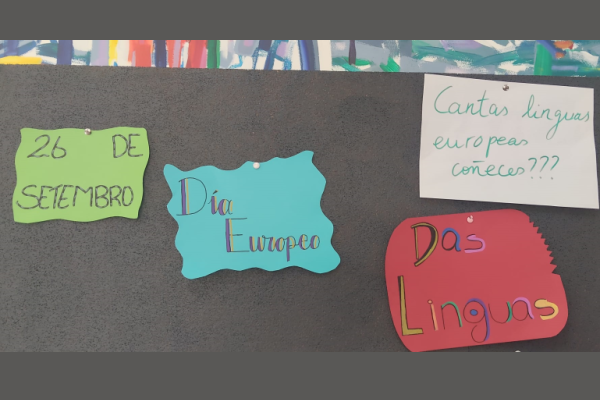 26 DE
SETEMBRO
Día
Europeo
Das
Linguas
Cantas linguas
europeas
coñeces???